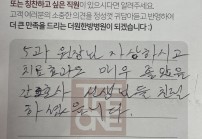 또는 칭찬하고 싶은 직원이 있으시다면 알려주세요.
고객 여러분의 소중한 의견을 정성껏 귀담아듣고 반영하여
더 큰 만족을 드리는 더원한방병원이 되겠습니다 :)
5과 원장님 자상하시고
치료효과도 매우 좋았음
간호사 선생님들 친절
하셨습니다.
THE
ONE